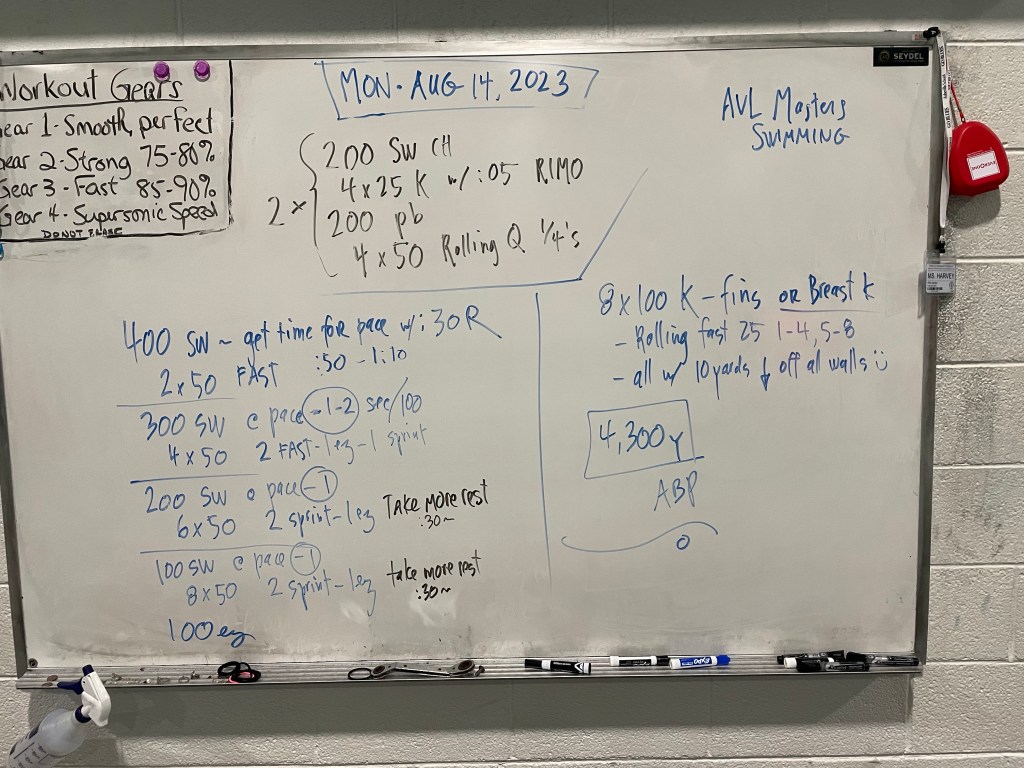 Workout Gears
ear 1 - Smooth, perfect
ear 2 - Strong 75-80%
Gear 3 - Fast 85-90%
Gear 4 - Supersonic Speed
DO NOT ERASE
MON. AUG 14, 2023
2 x
200 SW CH
4 x 25 K w/ :05 RIMO
200 pb
4 x 50 Rolling Q 1/4's
AVL Masters
SWIMMING
SEYDEL
MS. HARVEY
400 SW ~ get time for pace w/ :30 R
2 x 50 FAST :50 - 1:10
300 SW @ pace -1-2 sec/100
4 x 50 2 FAST - 1 ez - 1 sprint
200 SW @ pace -1
6 x 50 2 sprint - 1 ez Take more rest
:30~
100 SW @ pace -1
8 x 50 2 sprint - 1 ez take more rest
:30~
100 ez
8 x 100 K - fins or Breast K
- Rolling fast 25 1-4, 5-8
- all w/ 10 yards ↓ off all walls
4,300 y
ABP
EXPO